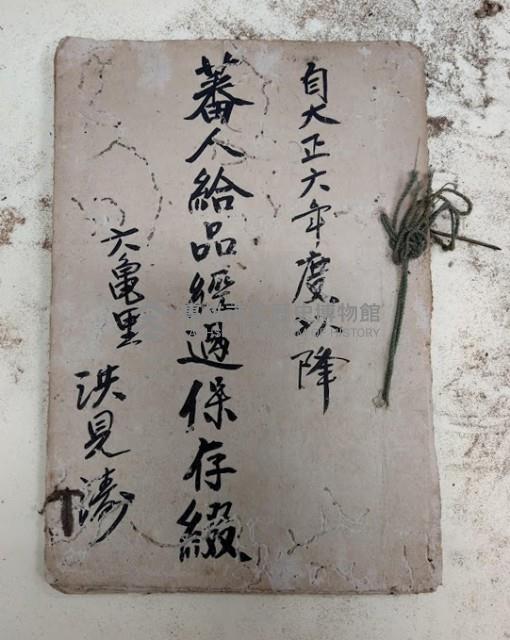 自大正六年度以降
蕃人給品經過保存綴
六亀里 洪見濤
博物館
OF HISTORY